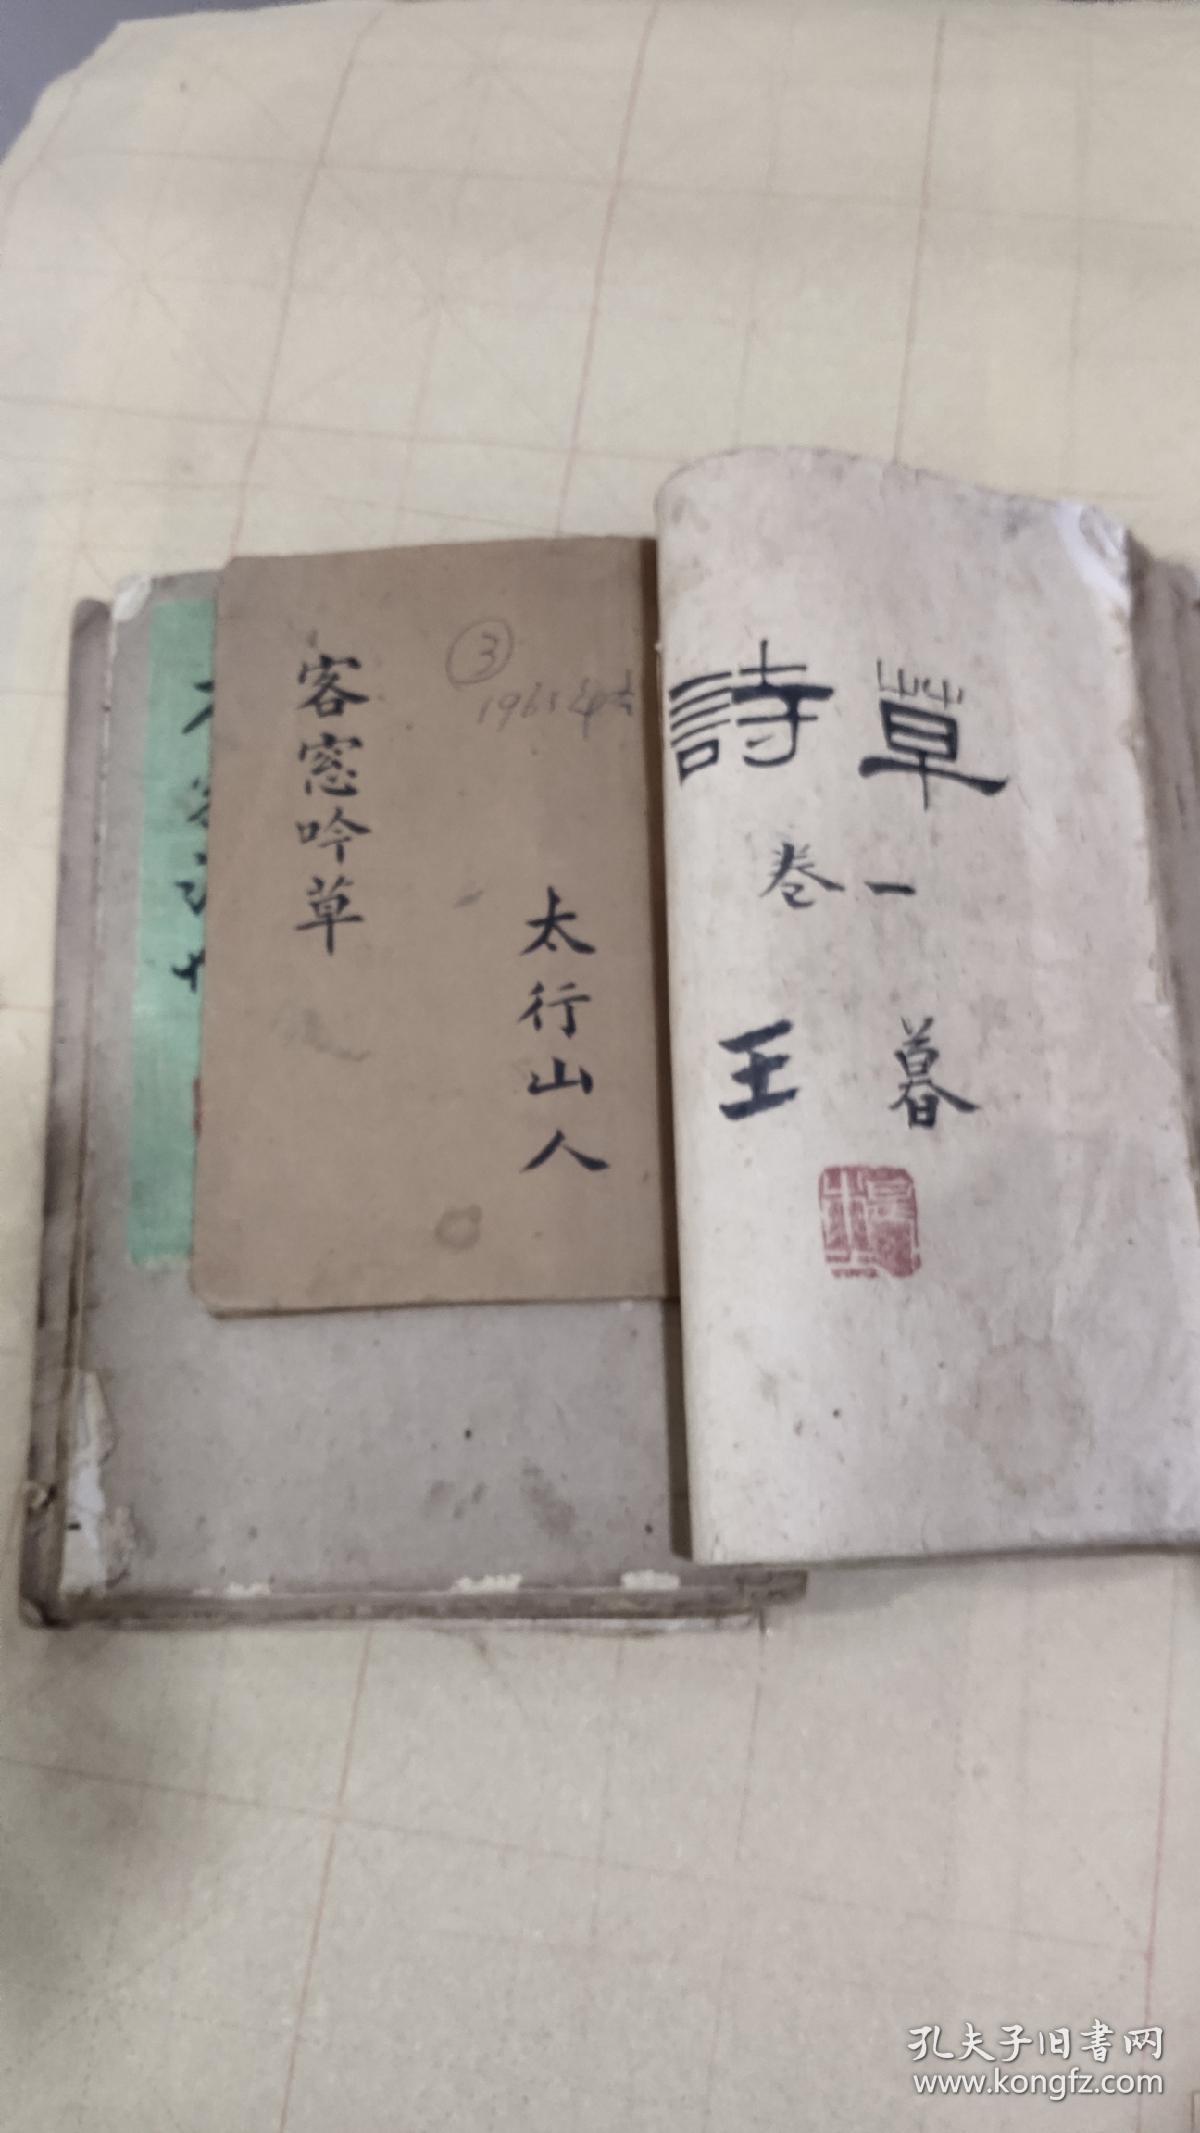 客窓吟草
③
1965年
太行山人
詩草
卷一
王暮
孔夫子旧书网
www.kongfz.com